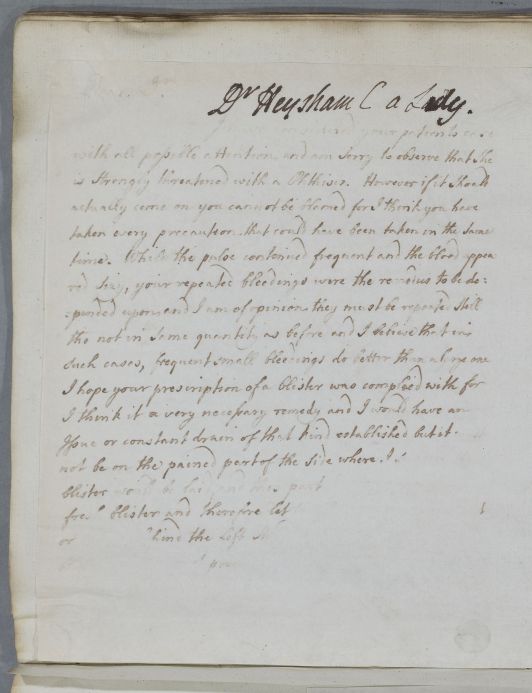 Dr Heysham C a Lady.
considered your patients case
with all possible attention and am sorry to observe that She
is strongly threatened with a Pthisis. However if it should
actually come on you cannot be blamed for I think you have
taken every precaution that could have been taken in the same
time. While the pulse continued frequent and the blood appea
red sizy, your repeated bleedings were the remedies to be de:
:pended upon and I am of opinion they must be repeated still
tho not in same quantity as before and I believe that in
such cases, frequent small bleedings do better than a large one
I hope your prescription of a blister was complied with for
I think it a very necessary remedy and I would have an
Issue or constant drain of that kind established but it
not be on the pained part of the side where
blister would be laid and part
blister and therefore let
or the left